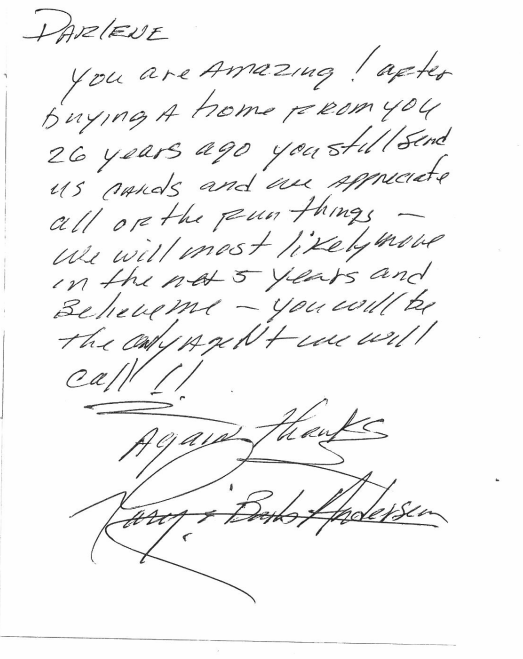 DARLENE
You are Amazing! after
buying A home from you
26 years ago you still send
us cards and we appreciate
all of the fun things –
We will most likely move
in the net 5 years and
Believe me – you will be
the only Agent we will
call!!
Again thanks
& Barb Andersen